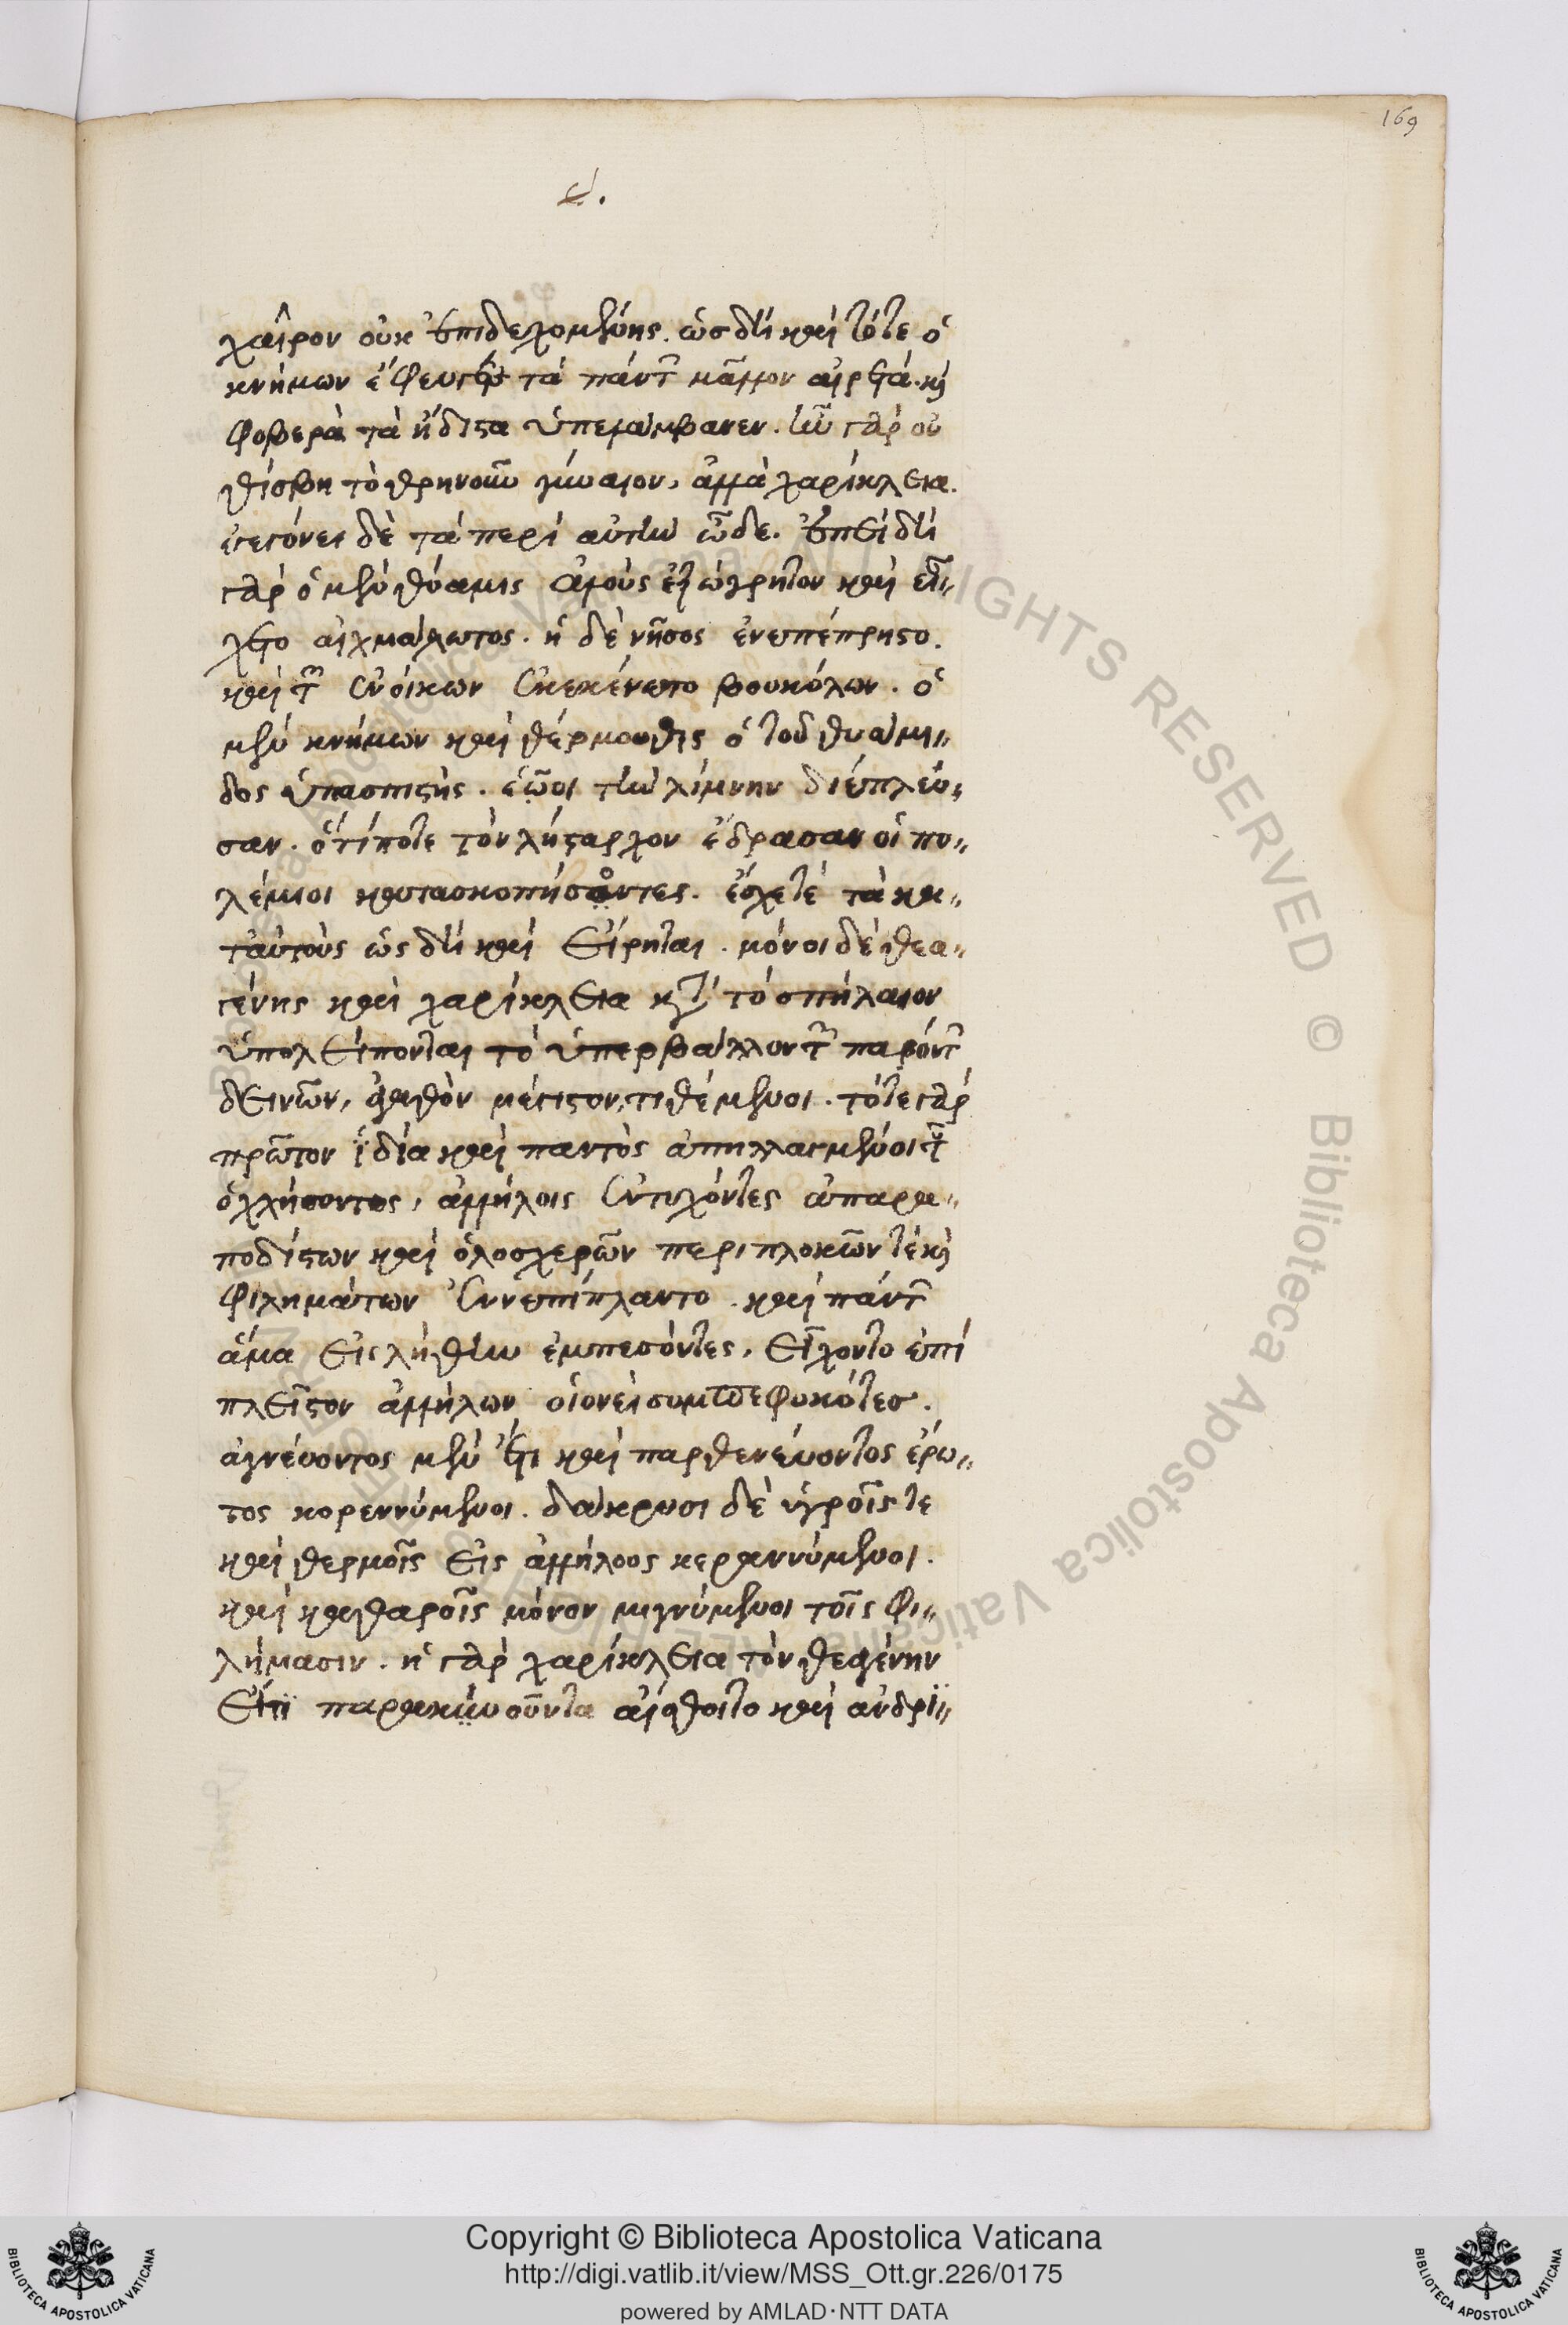 169
ε΄.
χαῖρον οὐκ ἐπιδεχομένης. ὡς δὴ καὶ τότε ὁ
κνήμων ἔφευγε τὰ πάντων μᾶλλον αἱρετά. καὶ
φοβερὰ τὰ ἥδιστα ὑπελάμβανεν. ἦν γὰρ οὐ
θίσβη τὸ θρηνοῦν γύναιον, ἀλλὰ χαρίκλεια.
ἐγεγόνει δὲ τὰ περὶ αὐτὴν ὧδε. ἐπειδὴ
γὰρ ὁ μὲν θύαμις ἁλοὺς ἐζώγρητον καὶ εἴ„
χετο αἰχμάλωτος. ἡ δὲ νῆσος ἐνεπέπρηστο.
καὶ τῶν ἐνοίκων ἐκεκένωτο βουκόλων. ὁ
μὲν κνήμων καὶ θέρμουθις ὁ τοῦ θυάμι„
δος ὑπασπιστής. ἑῷοι τὴν λίμνην διέπλευ„
σαν. ὅτί ποτε τὸν λήσταρχον ἔδρασαν οἱ πο„
λέμιοι κατασκοπήσοντες. ἔσχετέ τὰ κα„
τ᾽αὐτοὺς ὡς δὴ καὶ εἴρηται. μόνοι δὲ θεα„
γένης καὶ χαρίκλεια κατὰ τὸ σπήλαιον
ὑπολείπονται τὸ ὑπερβάλλον τῶν παρόντων
δεινῶν, ἀγαθὸν μέγιστον τιθέμενοι. τότε γὰρ
πρῶτον ἰδία καὶ παντὸς ἀπηλλαγμένοι τοῦ
ὀχλήσοντος, ἀλλήλοις ἐντυχόντες ἀπαρα„
ποδίστων καὶ ὁλοσχερῶν περιπλοκῶν τὲ καὶ
φιλημάτων ἐννεπίπλαντο. καὶ πάντων
ἅμα εἰς λήθην ἐμπεσόντες, εἴχοντο ἐπὶ
πλεῖστον ἀλλήλων οἱονεὶ συμπεφυκότες.
ἁγνεύοντος μὲν ἔτι καὶ παρθενεύοντος ἔρω„
τος κορεννύμενοι. δάκρυσι δὲ ὑγροῖς τε
καὶ θερμοῖς εἰς ἀλλήλους κεραννύμενοι.
καὶ καθαροῖς μόνον μιγνύμενοι τοῖς φι„
λήμασιν. ἡ γὰρ χαρίκλεια τὸν θεαγένην
εἴτι παρακινοῦντα αἴσθοιτο καὶ ἀνδρι„
Copyright © Biblioteca Apostolica Vaticana
http://digi.vatlib.it/view/MSS_Ott.gr.226/0175
powered by AMLAD·NTT DATA